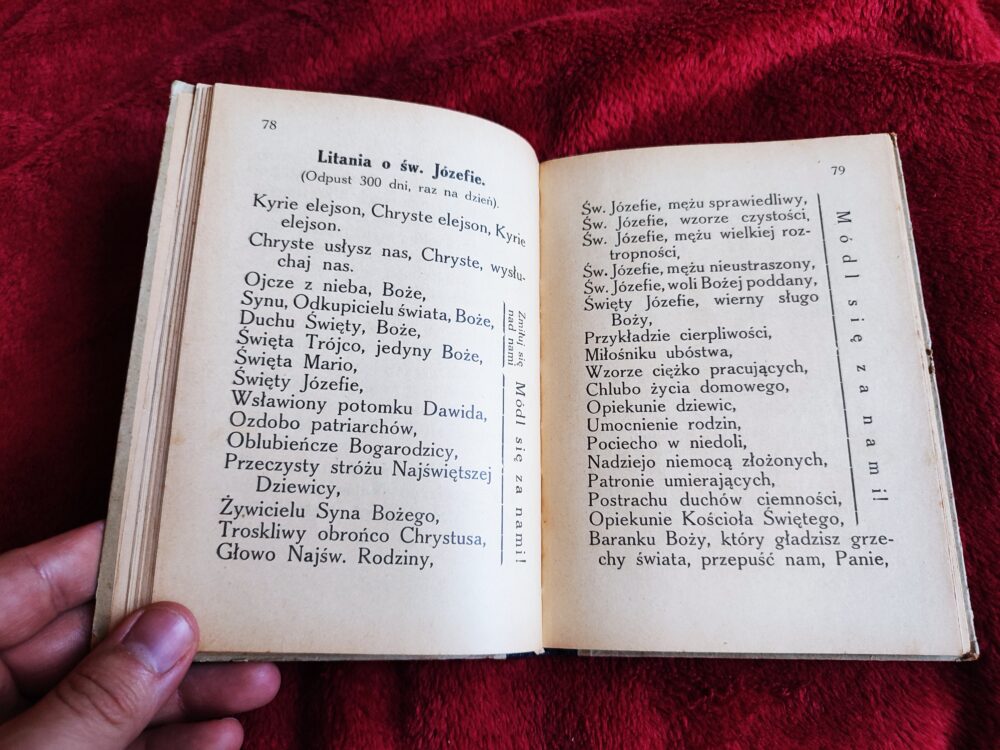 78
Litania o św. Józefie.
(Odpust 300 dni, raz na dzień).
Kyrie elejson, Chryste elejson, Kyrie
elejson.
Chryste usłysz nas, Chryste, wysłu-
chaj nas.
Ojcze z nieba, Boże,
Synu, Odkupicielu świata, Boże,
Duchu Święty, Boże,
Święta Trójco, jedyny Boże,
Święta Mario,
Święty Józefie,
Wsławiony potomku Dawida,
Ozdobo patriarchów,
Oblubieńcze Bogarodzicy,
Przeczysty stróżu Najświętszej
Dziewicy,
Żywicielu Syna Bożego,
Troskliwy obrońco Chrystusa,
Głowo Najśw. Rodziny,
Zmiłuj się
nad nami
Módl się za nami!
79
Św. Józefie, mężu sprawiedliwy,
Św. Józefie, wzorze czystości,
Św. Józefie, mężu wielkiej roz-
tropności,
Św. Józefie, mężu nieustraszony,
Św. Józefie, woli Bożej poddany,
Święty Józefie, wierny sługo
Boży,
Przykładzie cierpliwości,
Miłośniku ubóstwa,
Wzorze ciężko pracujących,
Chlubo życia domowego,
Opiekunie dziewic,
Umocnienie rodzin,
Pociecho w niedoli,
Nadziejo niemocą złożonych,
Patronie umierających,
Postrachu duchów ciemności,
Opiekunie Kościoła Świętego,
Baranku Boży, który gładzisz grze-
chy świata, przepuść nam, Panie,
Módl się za nami!